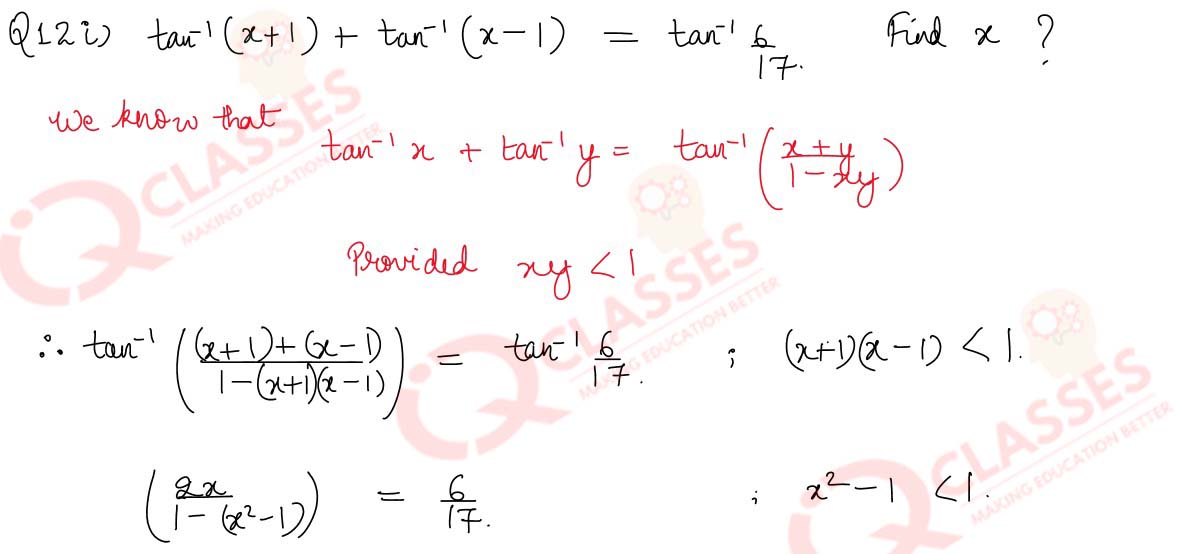 Q12 i) tan⁻¹(x+1) + tan⁻¹(x-1) = tan⁻¹ 6/17. Find x ?
We know that
tan⁻¹ x + tan⁻¹ y = tan⁻¹ ((x+y)/(1-xy))
Provided xy < 1
∴ tan⁻¹ (((x+1)+(x-1))/(1-(x+1)(x-1))) = tan⁻¹ 6/17. ; (x+1)(x-1) < 1.
(2x/(1-(x²-1))) = 6/17. ; x²-1 < 1.
IQ CLASSES
MAKING EDUCATION BETTER
IQ CLASSES
MAKING EDUCATION BETTER
IQ CLASSES
MAKING EDUCATION BETTER